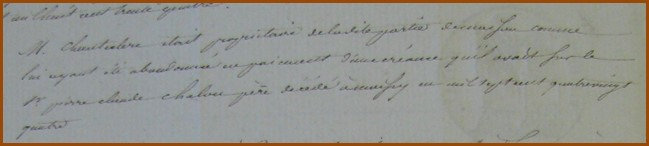 huit cent trente quatre.
M. Chantelere était propriétaire de la dite partie de maison comme
lui ayant été abandonnée en paiement d'une créance qu'il avait sur le
Sr. pierre claude Chalon père décédé à maissy en mil sept cent quatre vingt
quatre